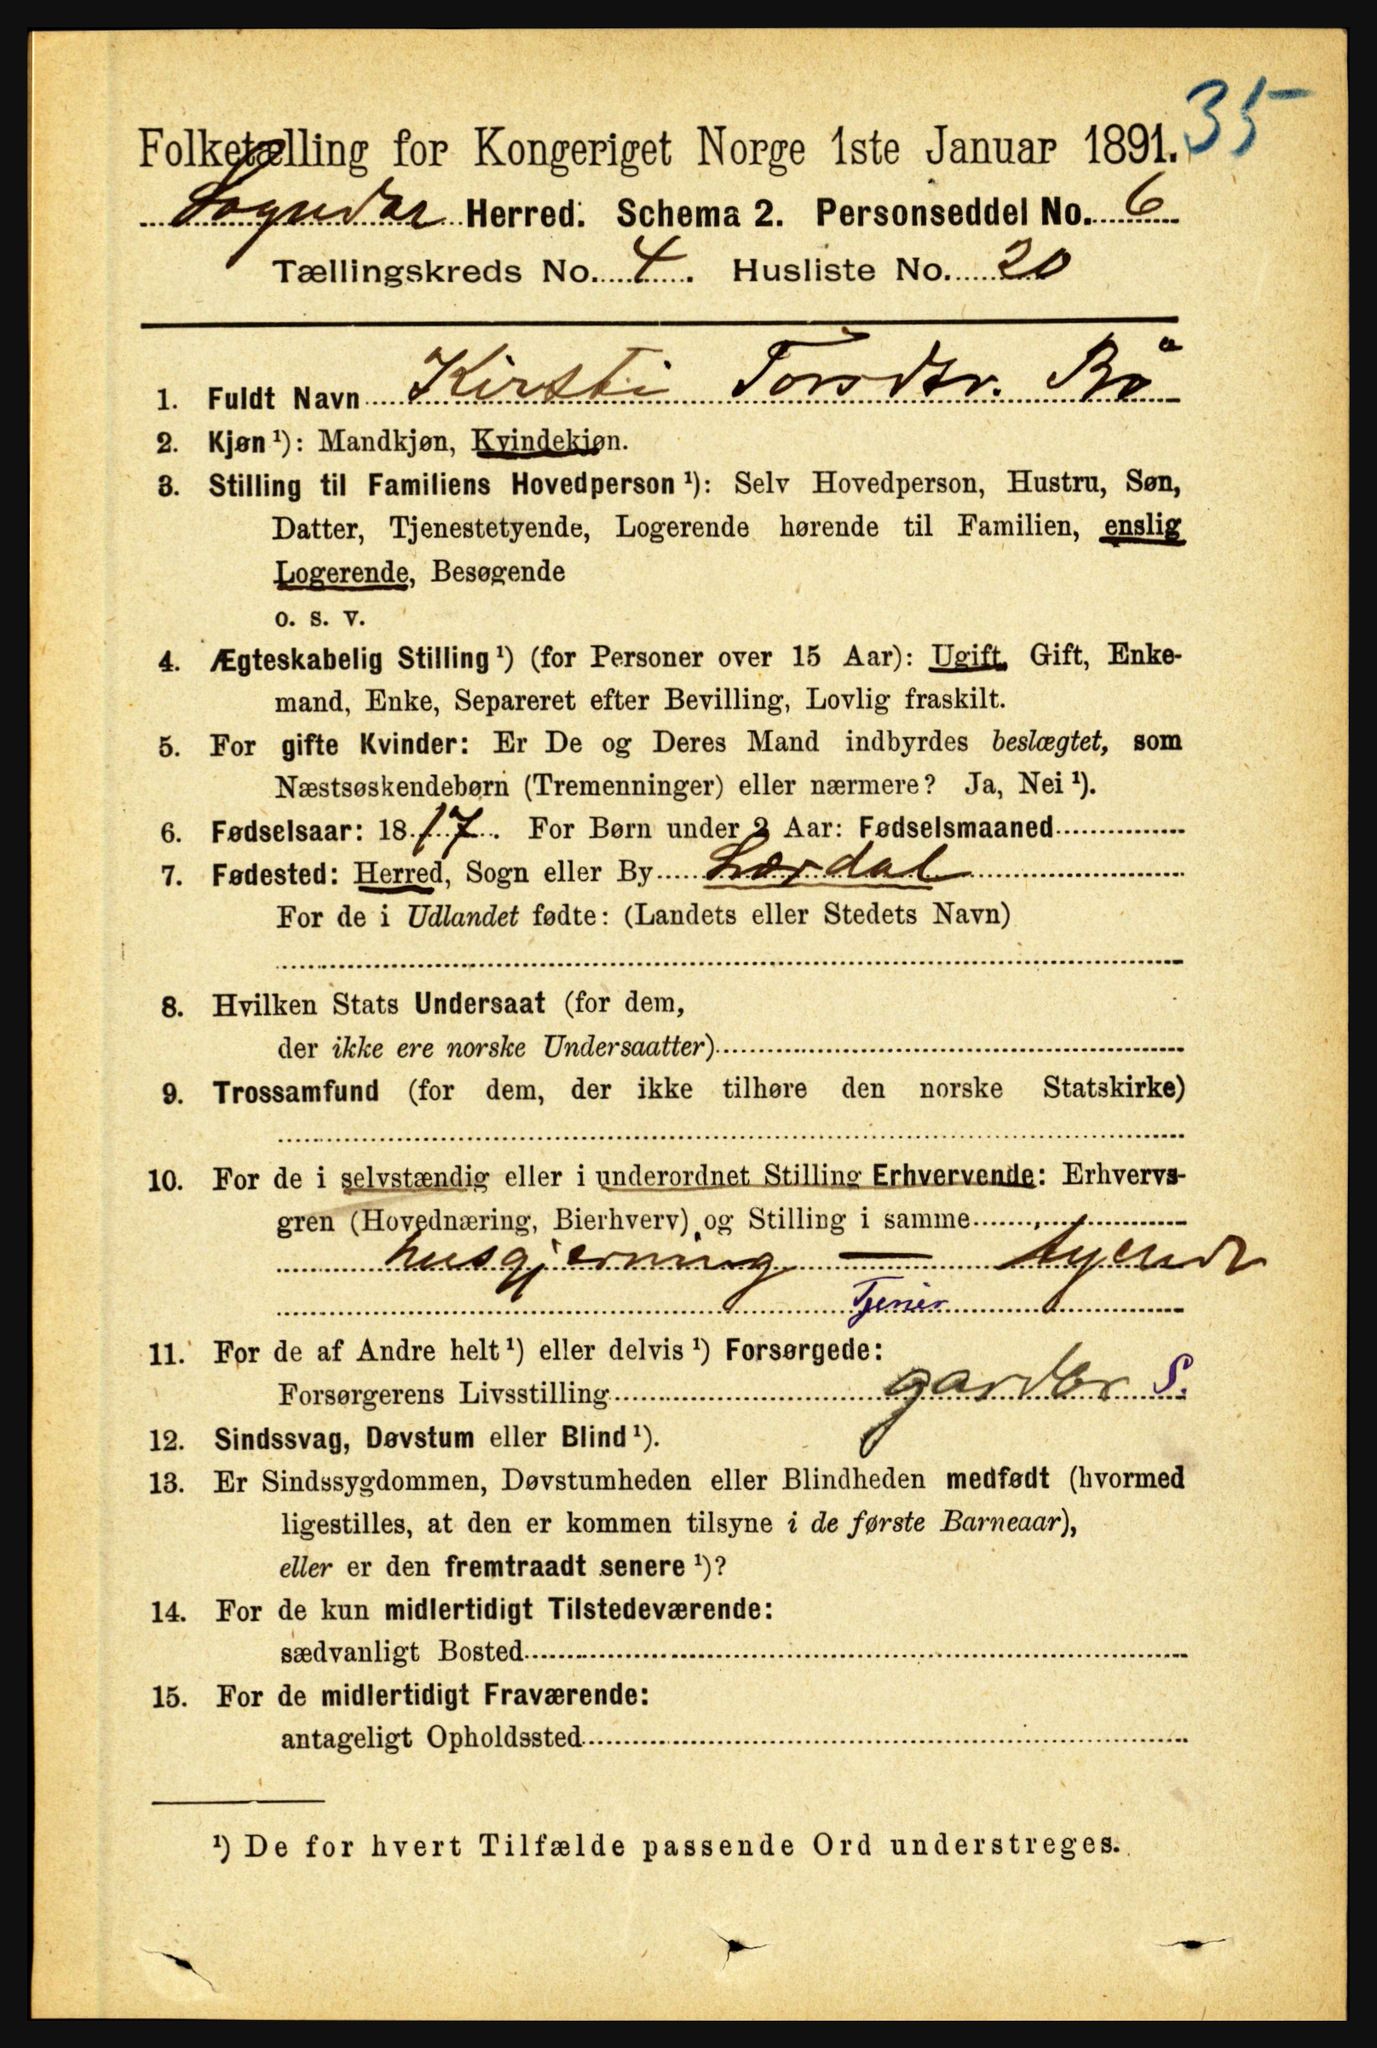 35
Folketælling for Kongeriget Norge 1ste Januar 1891.
Sogndal Herred. Schema 2. Personseddel No. 6
Tællingskreds No. 4. Husliste No. 20
1. Fuldt Navn Kirsti Torsdtr. Bø
2. Kjøn ¹): Mandkjøn, Kvindekjøn.
3. Stilling til Familiens Hovedperson ¹): Selv Hovedperson, Hustru, Søn,
Datter, Tjenestetyende, Logerende hørende til Familien, enslig
Logerende, Besøgende
o. s. v.
4. Ægteskabelig Stilling ¹) (for Personer over 15 Aar): Ugift, Gift, Enke-
mand, Enke, Separeret efter Bevilling, Lovlig fraskilt.
5. For gifte Kvinder: Er De og Deres Mand indbyrdes beslægtet, som
Næstsøskendebørn (Tremenninger) eller nærmere? Ja, Nei ¹).
6. Fødselsaar: 1817. For Børn under 2 Aar: Fødselsmaaned
7. Fødested: Herred, Sogn eller By Lærdal
For de i Udlandet fødte: (Landets eller Stedets Navn)
8. Hvilken Stats Undersaat (for dem,
der ikke ere norske Undersaatter)
9. Trossamfund (for dem, der ikke tilhøre den norske Statskirke)
10. For de i selvstændig eller i underordnet Stilling Erhvervende: Erhvervs-
gren (Hovednæring, Bierhverv) og Stilling i samme
husgjerning — tyende
Tjener
11. For de af Andre helt ¹) eller delvis ¹) Forsørgede:
Forsørgerens Livsstilling S.
12. Sindssvag, Døvstum eller Blind ¹).
13. Er Sindssygdommen, Døvstumheden eller Blindheden medfødt (hvormed
ligestilles, at den er kommen tilsyne i de første Barneaar),
eller er den fremtraadt senere ¹)?
14. For de kun midlertidigt Tilstedeværende:
sædvanligt Bosted
15. For de midlertidigt Fraværende:
antageligt Opholdssted
¹) De for hvert Tilfælde passende Ord understreges.